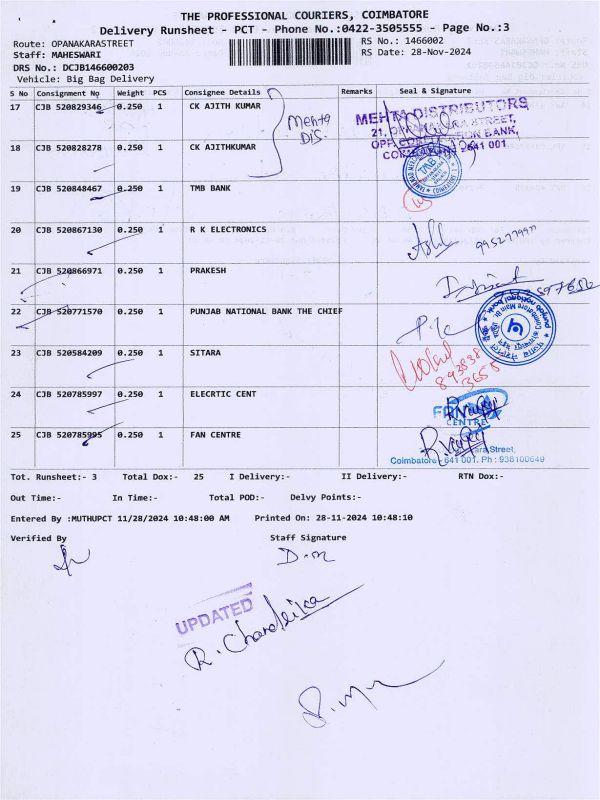 THE PROFESSIONAL COURIERS, COIMBATORE
Delivery Runsheet - PCT - Phone No.:0422-3505555 - Page No.:3
Route: OPANAKARASTREET RS No.: 1466002
Staff: MAHESWARI RS Date: 28-Nov-2024
DRS No.: DCJB146600203
Vehicle: Big Bag Delivery
S No Consignment No Weight PCS Consignee Details Remarks Seal & Signature
17 CJB 520829346 0.250 1 CK AJITH KUMAR
Mehta
Dis.
MEHTA DISTRIBUTORS
18 CJB 520828278 0.250 1 CK AJITHKUMAR
19 CJB 520848467 0.250 1 TMB BANK
TMB
20 CJB 520867130 0.250 1 R K ELECTRONICS
21 CJB 520866971 0.250 1 PRAKESH
22 CJB 520771570 0.250 1 PUNJAB NATIONAL BANK THE CHIEF
23 CJB 520584209 0.250 1 SITARA
24 CJB 520785997 0.250 1 ELECRTIC CENT
CENTRE
25 CJB 520785995 0.250 1 FAN CENTRE
Street,
Coimbatore - 641 001. Ph : 938100649
Tot. Runsheet:- 3 Total Dox:- 25 I Delivery:- II Delivery:- RTN Dox:-
Out Time:- In Time:- Total POD:- Delvy Points:-
Entered By :MUTHUPCT 11/28/2024 10:48:00 AM Printed On: 28-11-2024 10:48:10
Verified By Staff Signature
UPDATED
R. Chandrika